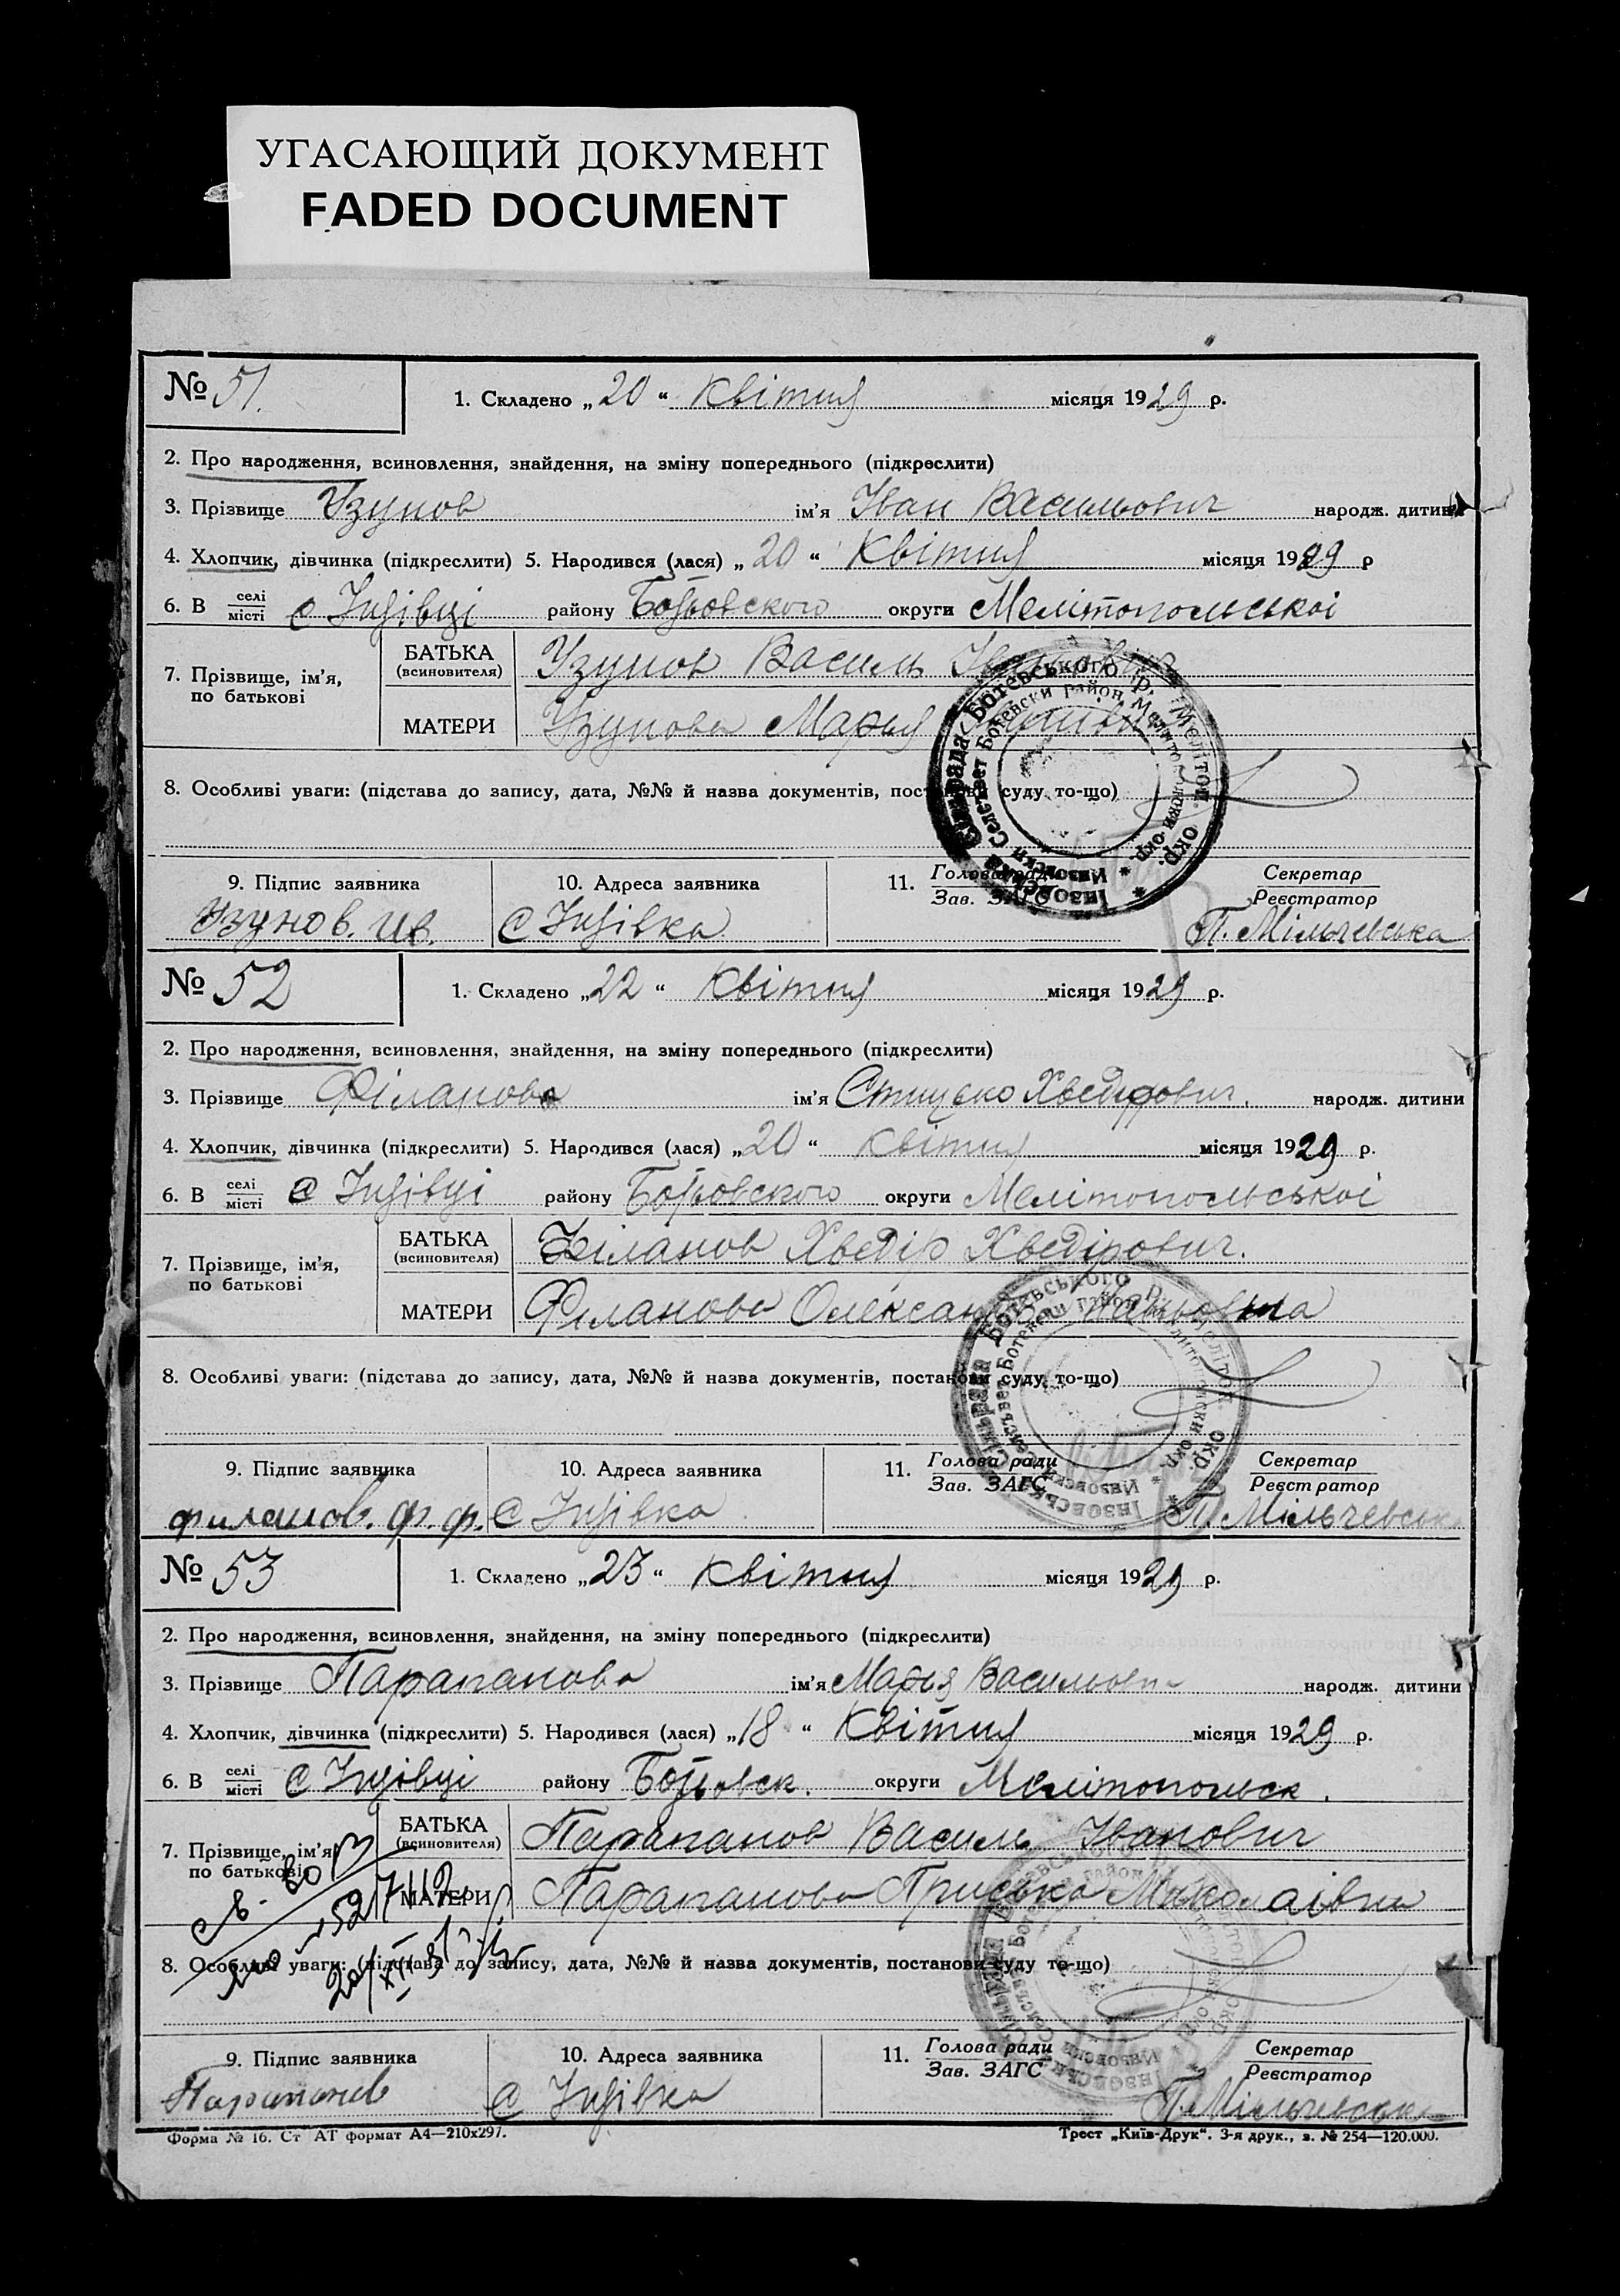 УГАСАЮЩИЙ ДОКУМЕНТ
FADED DOCUMENT
№ 51.
1. Складено „20“ Квітня місяця 1929 р.
2. Про народження, всиновлення, знайдення, на зміну попереднього (підкреслити)
3. Прізвище Узунов ім'я Іван Васильович народж. дитини
4. Хлопчик, дівчинка (підкреслити) 5. Народився (лася) „20“ Квітня місяця 1929 р
6. В селі місті с Інзівці району Ботьовского округи Мелітопольськоі
7. Прізвище, ім'я, по батькові
БАТЬКА (всиновителя) Узунов Василь
МАТЕРИ Узунова Марья
8. Особливі уваги: (підстава до запису, дата, №№ й назва документів, постанови суду, то-що)
9. Підпис заявника 10. Адреса заявника 11. Голова ради Зав. ЗАГС Секретар Реєстратор
Узунов. Ив. с Інзівка П. Мільчевська
№ 52
1. Складено „22“ Квітня місяця 1929 р.
2. Про народження, всиновлення, знайдення, на зміну попереднього (підкреслити)
3. Прізвище Філанов ім'я Стицько Хведорович. народж. дитини
4. Хлопчик, дівчинка (підкреслити) 5. Народився (лася) „20“ Квітня місяця 1929 р.
6. В селі місті с Інзівці району Ботьовского округи Мелітопольськоі
7. Прізвище, ім'я, по батькові
БАТЬКА (всиновителя) Філанов Хведір Хведірович.
МАТЕРИ Філанова
8. Особливі уваги: (підстава до запису, дата, №№ й назва документів, постанови суду, то-що)
9. Підпис заявника 10. Адреса заявника 11. Голова ради Зав. ЗАГС Секретар Реєстратор
филанов. ф. ф. с Інзівка П. Мільчевськ
№ 53
1. Складено „23“ Квітня місяця 1929 р.
2. Про народження, всиновлення, знайдення, на зміну попереднього (підкреслити)
3. Прізвище Парапанова ім'я Марья народж. дитини
4. Хлопчик, дівчинка (підкреслити) 5. Народився (лася) „18“ Квітня місяця 1929 р.
6. В селі місті с Інзівці району Ботьовск. округи Мелітопольск.
7. Прізвище, ім'я, по батькові
БАТЬКА (всиновителя) Парапанов Василь Іванович
МАТЕРИ Парапанова Приська Миколаівна
8. Особливі уваги: (підстава до запису, дата, №№ й назва документів, постанови суду то-що)
9. Підпис заявника 10. Адреса заявника 11. Голова ради Зав. ЗАГС Секретар Реєстратор
Парапанов с Інзівка П. Мільчевська
Форма № 16. Ст АТ формат А4—210х297. Трест „Київ-Друк“. 3-я друк., з. № 254—120.000.